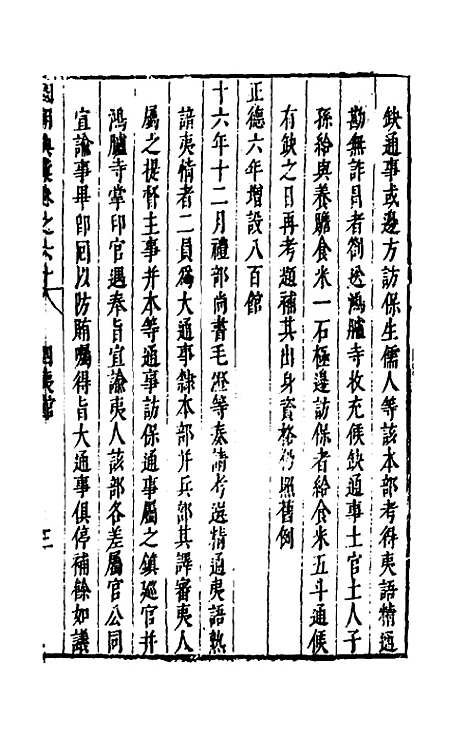 缺通事或邊方訪保生儒人等該本部考得夷語精通
勘無詐冒者劄送鴻臚寺收充候缺通事土官土人子
孫給與養贍食米一石極邊訪保者給食米五斗通候
有缺之日再考題補其出身資格仍照舊例
正德六年增設八百館
十六年十二月禮部尚書毛澄等奏請考選精通夷語熟
諳夷情者二員爲大通事隸本部并兵部其譯審夷人
屬之提督主事并本等通事訪保通事屬之鎮廵官并
鴻臚寺掌印官遇奉旨宣諭夷人該部各差屬官公同
宣諭事畢卽囘以防賄囑得旨大通事俱停補餘如議
國朝典彙卷之六十 四夷館 三